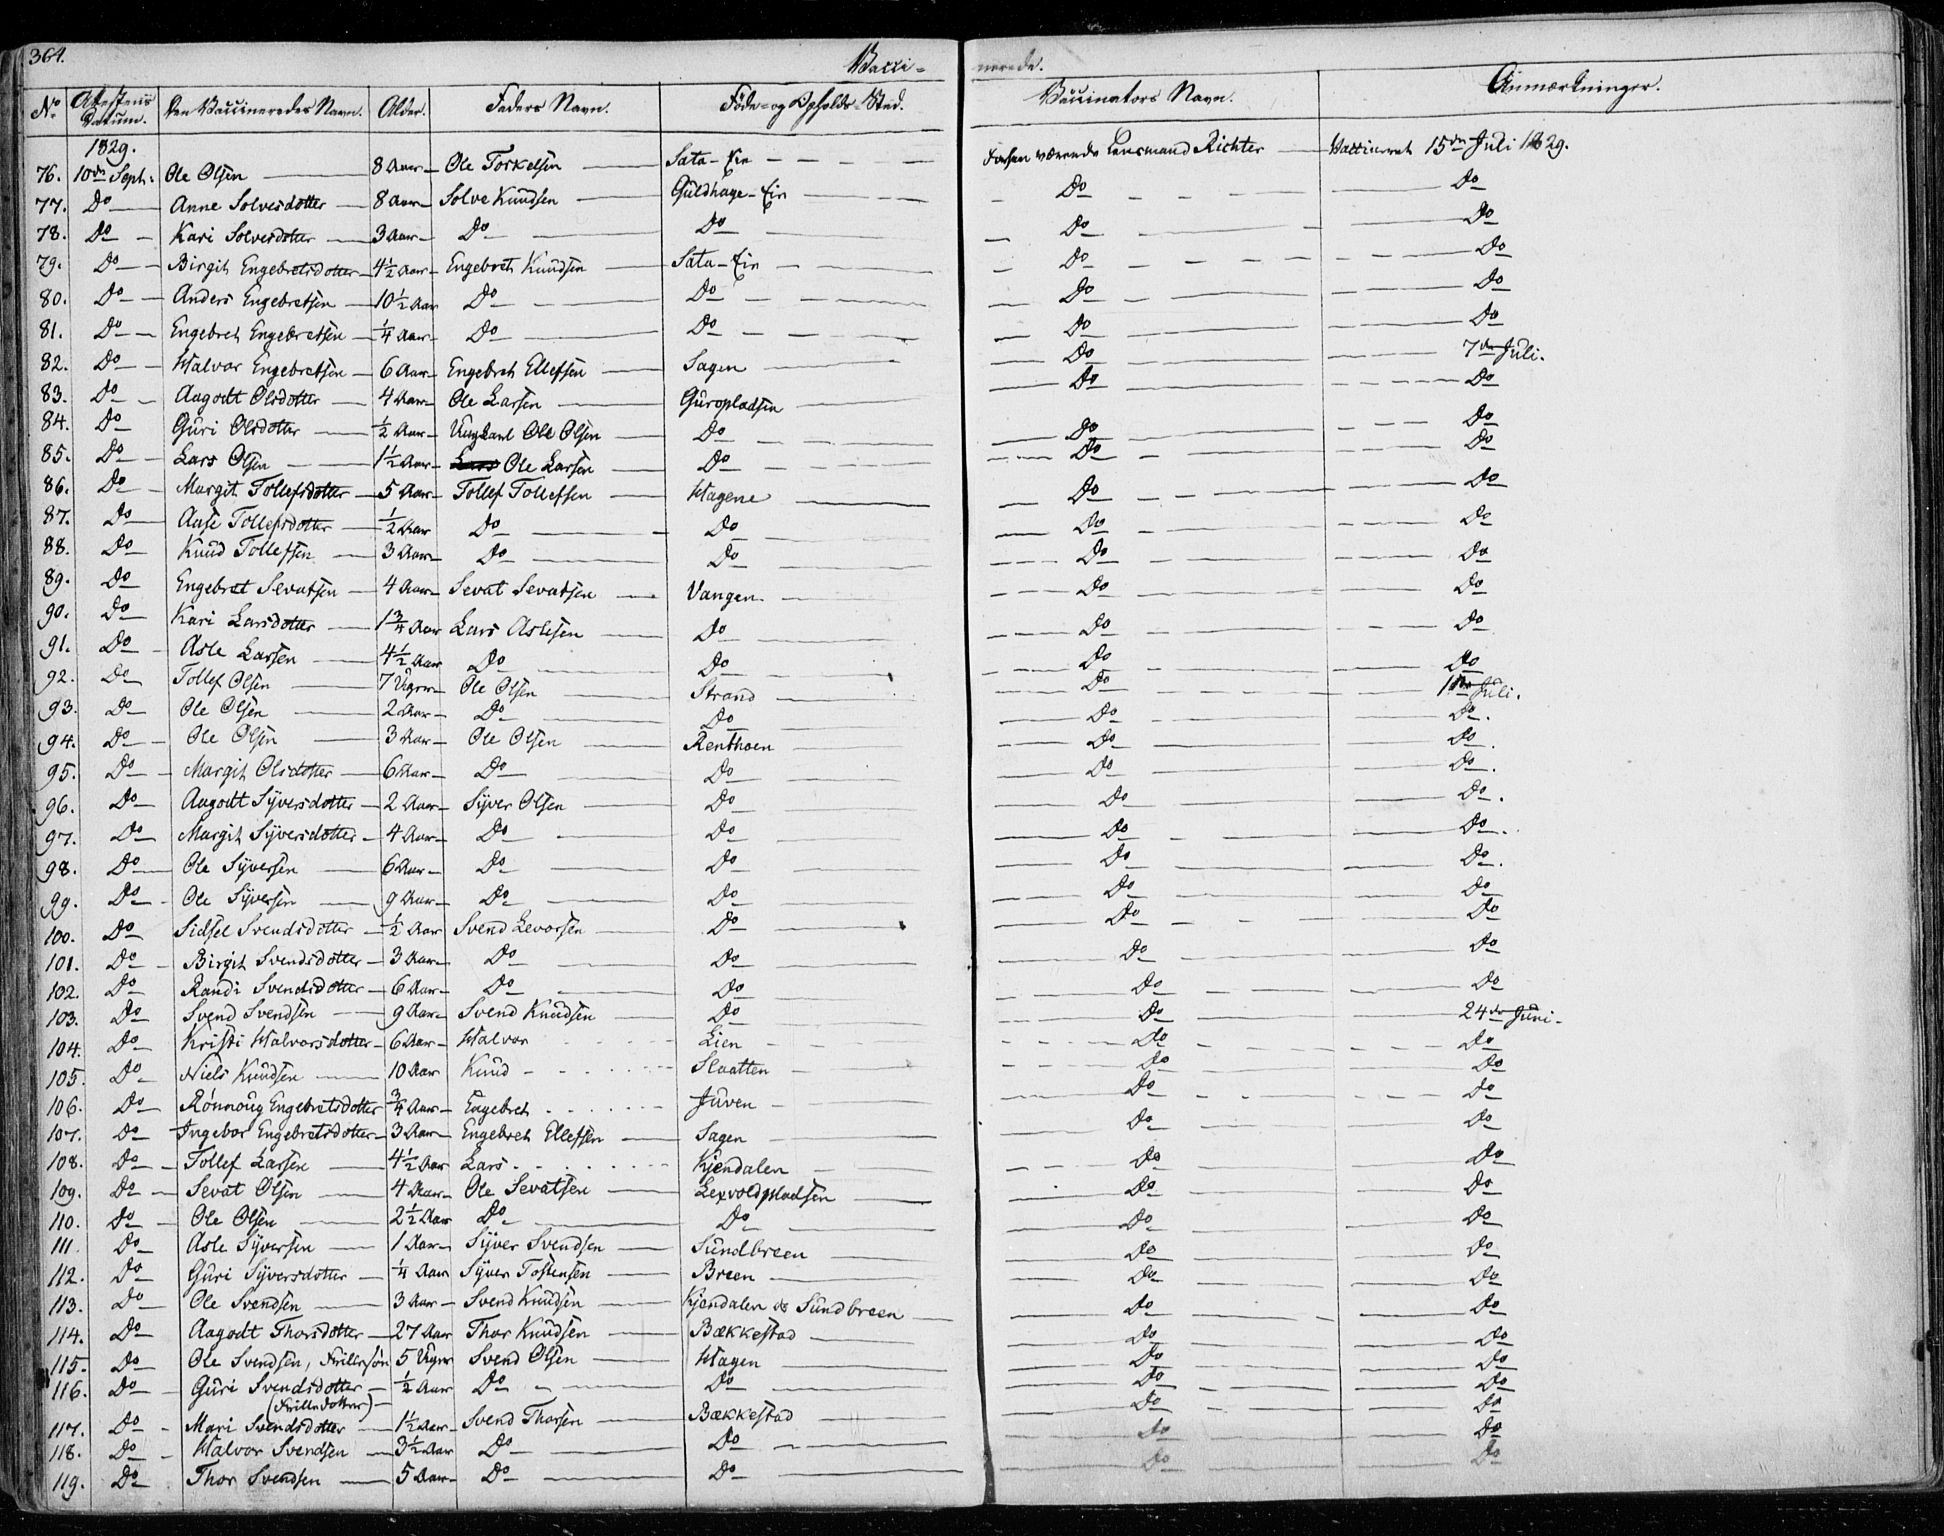 364. Vacci= nerede.
No Attestens Datum. Den Vaccineredes Navn. Alder. Faders Navn. Føde- og Opholds-Sted. Vaccinators Navn. Anmærkninger.
1829.
76. 10de Septr. Ole Olsen 8 Aar Ole Torkelsen Sata-Eie Forhen værende Lensmand Richter Vaccineret 15de Juli 1829.
77. Do Anne Solvesdotter 8 Aar Solve Knudsen Guldhage-Eie Do Do
78. Do Kari Solvesdotter 3 Aar Do Do Do Do
79. Do Birgit Engebretsdotter 4½ Aar Engebret Knudsen Sata-Eie Do Do
80. Do Anders Engebretsen 10½ Aar Do Do Do Do
81. Do Engebret Engebretsen ¼ Aar Do Do Do Do
82. Do Halvor Engebretsen 6 Aar Engebret Ellefsen Sagen Do 7de Juli.
83. Do Aagodt Olsdotter 4 Aar Ole Larsen Guropladsen Do Do
84. Do Guri Olsdotter ½ Aar Ungkarl Ole Olsen Do Do Do
85. Do Lars Olsen 1½ Aar Lars Ole Larsen Do Do Do
86. Do Margit Tollefsdotter 5 Aar Tollef Tollefsen Hagene Do Do
87. Do Aase Tollefsdotter ½ Aar Do Do Do Do
88. Do Knud Tollefsen 3 Aar Do Do Do Do
89. Do Engebret Sevatsen 4 Aar Sevat Sevatsen Vangen Do Do
90. Do Kari Larsdotter 1¾ Aar Lars Aslesen Do Do Do
91. Do Asle Larsen 4½ Aar Do Do Do Do
92. Do Tollef Olsen 7 Uger Ole Olsen Strand Do 1ste Juli.
93. Do Ole Olsen 2 Aar Do Do Do Do.
94. Do Ole Olsen 3 Aar Ole Olsen Renthoen Do Do.
95. Do Margit Olsdotter 6 Aar Do Do Do Do.
96. Do Aagodt Syversdotter 2 Aar Syver Olsen Do Do Do.
97. Do Margit Syversdotter 4 Aar Do Do Do Do.
98. Do Ole Syversen 6 Aar Do Do Do Do.
99. Do Ole Syversen 9 Aar Do Do Do Do
100. Do Sidsel Svendsdotter ½ Aar Svend Levorsen Do Do Do
101. Do Birgit Svendsdotter 3 Aar Do Do Do Do
102. Do Randi Svendsdotter 6 Aar Do Do Do Do
103. Do Svend Svendsen 9 Aar Svend Knudsen Do Do 24de Juni.
104. Do Kristi Halvorsdotter 6 Aar Halvor Lien Do Do
105. Do Niels Knudsen 10 Aar Knud Slaatten Do Do
106. Do Rønnoug Engebretsdotter ¾ Aar Engebret Juven Do Do
107. Do Ingebor Engebretsdotter 3 Aar Engebret Ellefsen Sagen Do Do
108. Do Tollef Larsen 4½ Aar Lars Kjendalen Do Do
109. Do Sevat Olsen 4 Aar Ole Sevatsen Lexvoldpladsen Do Do
110. Do Ole Olsen 2½ Aar Do Do Do Do
111. Do Asle Syversen 1 Aar Syver Svendsen Sundbreen Do Do
112. Do Guri Syversdotter ¼ Aar Syver Tostensen Breen Do Do
113. Do Ole Svendsen 3 Aar Svend Knudsen Kjendalen & Sundbreen Do Do
114. Do Aagodt Thorsdotter 27 Aar Thor Knudsen Bækkestad Do Do
115. Do Ole Svendsen, Frillesøn 5 Uger Svend Olsen Hagen Do Do
116. Do Guri Svendsdotter ½ Aar Do Do Do Do
(Frilledotter)
117. Do Mari Svendsdotter 1½ Aar Svend Thorsen Bækkestad Do Do
118. Do Halvor Svendsen 3½ Aar Do Do Do Do
119. Do Thor Svendsen 5 Aar Do Do Do Do